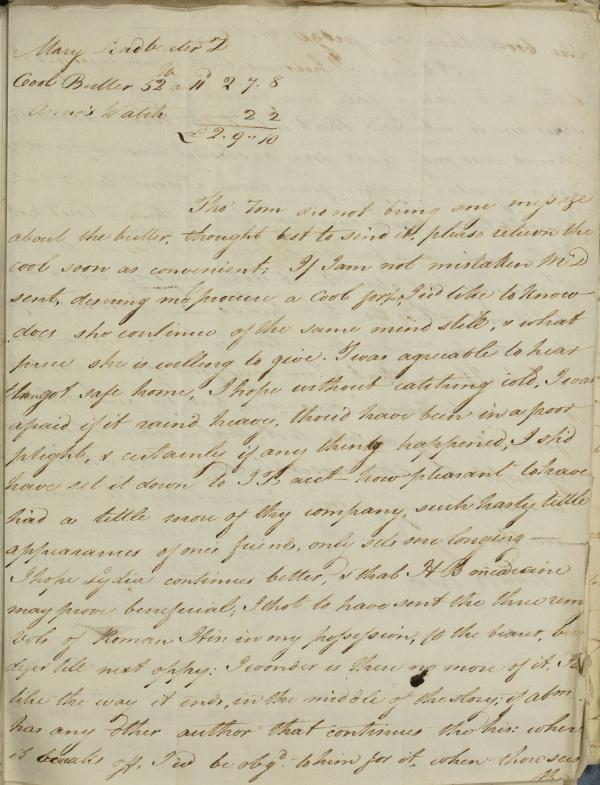 Mary Leadbeater Dr
Cool Butter 52 lb a 11d 2 7. 8
Watch 2 2
£ 2. 9.. 10
Tho' Tom did not bring any message
about the butter, thought best to send it, please return the
cool soon as convenient; If I am not mistaken MD
sent, desiring me procure a Cool for , I'd like to know
does she continue of the same mind still, & what
price she is willing to give. I was agreeable to hear
thee got safe home, I hope without catching cold, I was
afraid if it raind heavy, thou'd have been in a poor
plight, & certainly if any thing happened, I shd
have set it down to acct how pleasant to have
had a little more of thy company, such hasty little
appearances of ones friend, only sets one longing —
I hope Lydia continues better, & that H B medicine
may prove beneficial; I thot to have sent the three rem
vols of Roman His: in my possession, the bearer, but
till next oppy: I wonder is there no more of it. I
like the way it ends, in the middle of the story; if abm
has any other author that continues the his: where
it breaks off, I'd be obgd to him for it, when thou sees